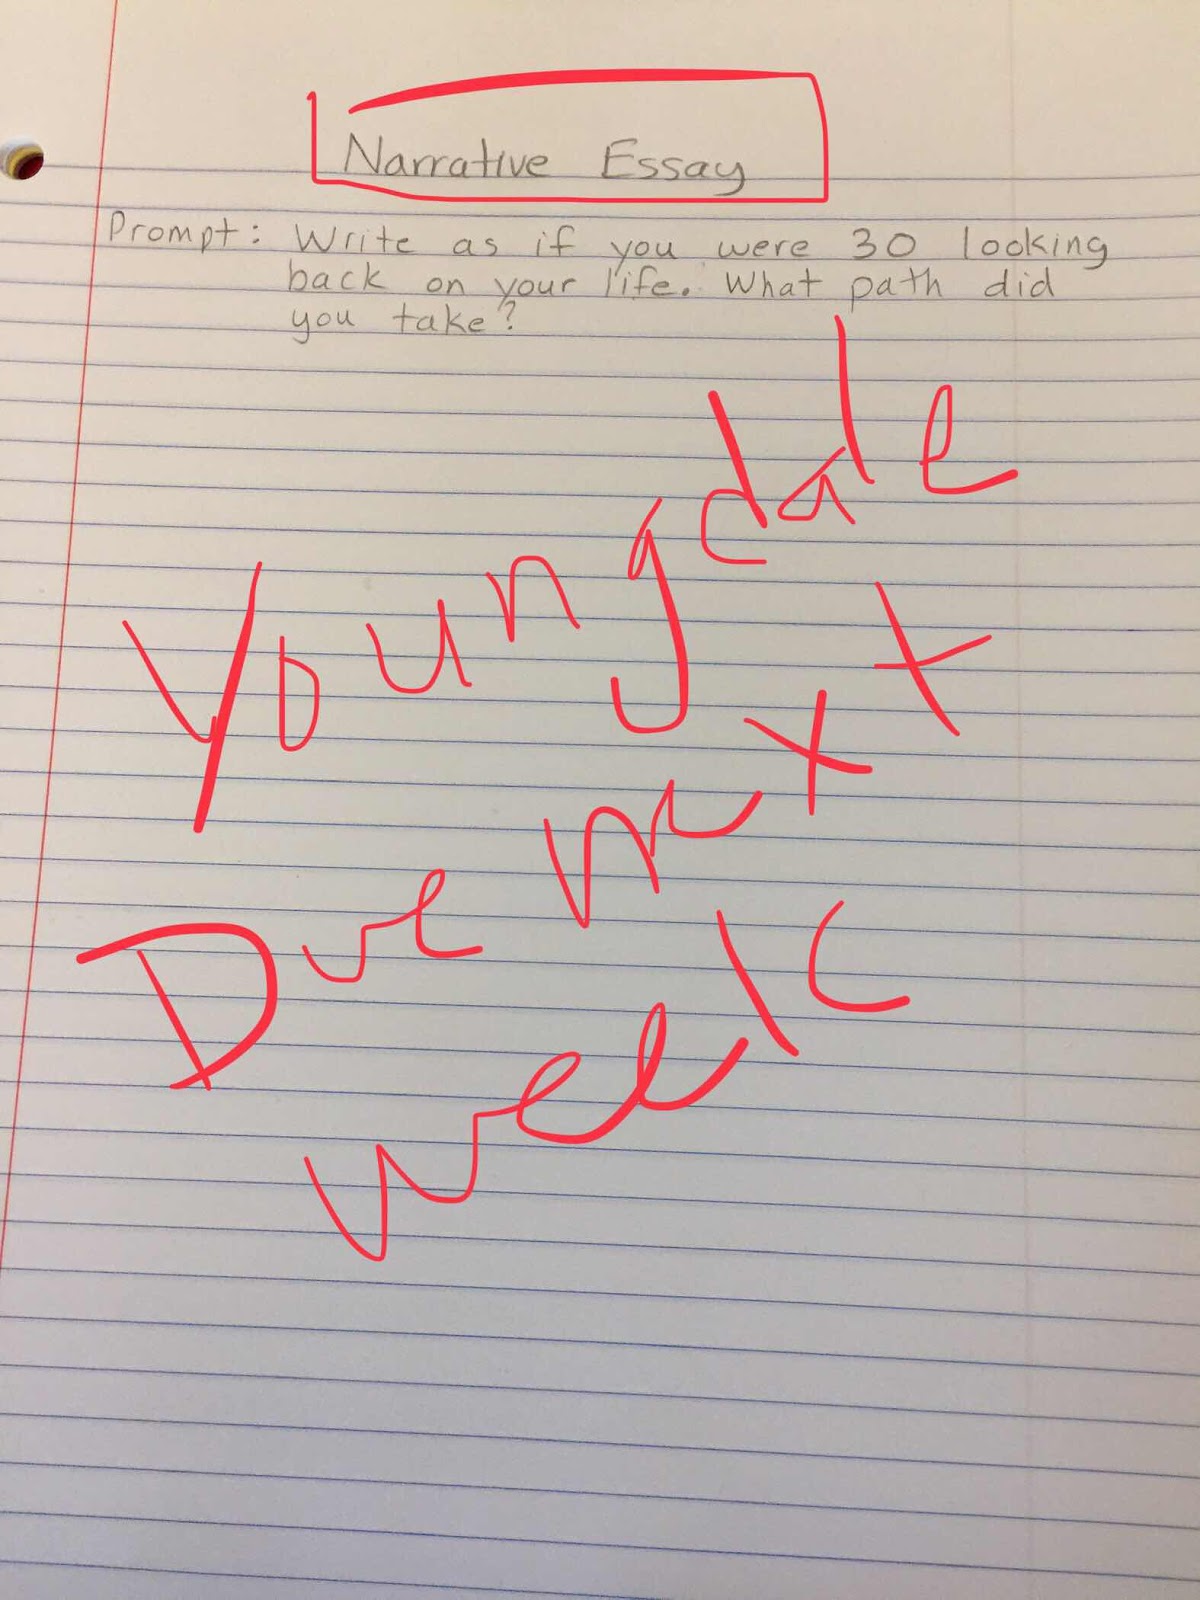 Narrative Essay
Prompt: Write as if you were 30 looking
back on your life. What path did
you take?
Youngdale
Due next
week